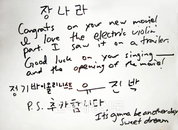 장나라
Congrats on your new movie!
I love the electric violin
part. I saw it on a trailer.
Good luck on your singing
and the opening of the movie!
진박
P.S. 추카합니다
It's gonna be another day
Sweet dream